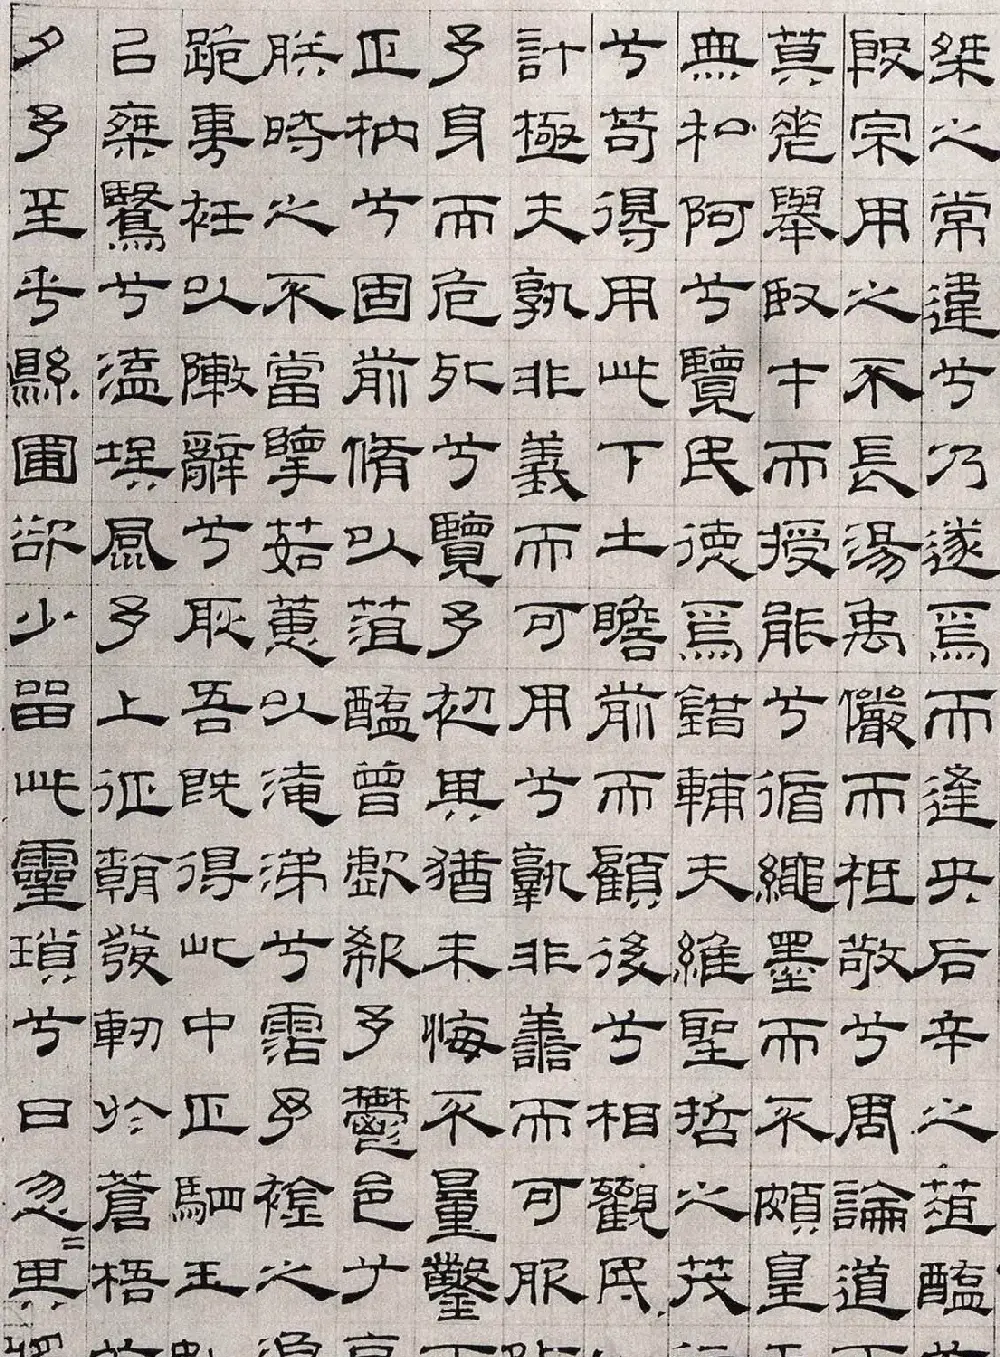 桀之常違兮乃遂焉而逢央后辛之菹醢
殷宗用之不長湯禹儼而祗敬兮周論道
莫差舉臤才而授能兮循繩墨而不頗皇
無私阿兮覽民德焉錯輔夫維聖哲之茂
兮苟得用此下土瞻前而顧後兮相觀民
計極夫孰非義而可用兮孰非善而可服
予身而危死兮覽予初其猶未悔不量鑿
正枘兮固前脩以菹醢曾歔欷予鬱邑兮
朕時之不當擥茹蕙以淹涕兮霑予襟之
跪尃衽以陳辭兮耿吾既得此中正駟玉
㠯椉鷖兮溘埃風予上征朝發軔於蒼梧
夕予至乎縣圃欲少留此靈瑣兮日忽〓其